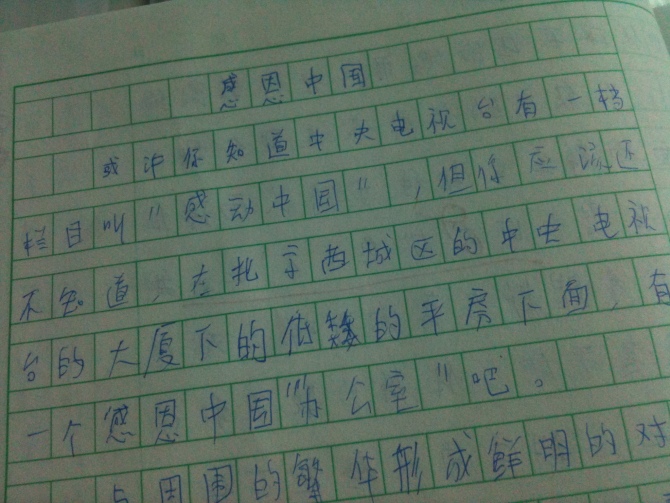 感恩中国
或许你知道中央电视台有一档
栏目叫"感动中国",但你应该还
不知道,在北京西城区的中央电视
台的大厦下的低矮的平房下面,有
一个感恩中国"办公室"吧。
与周围的繁华形成鲜明的对